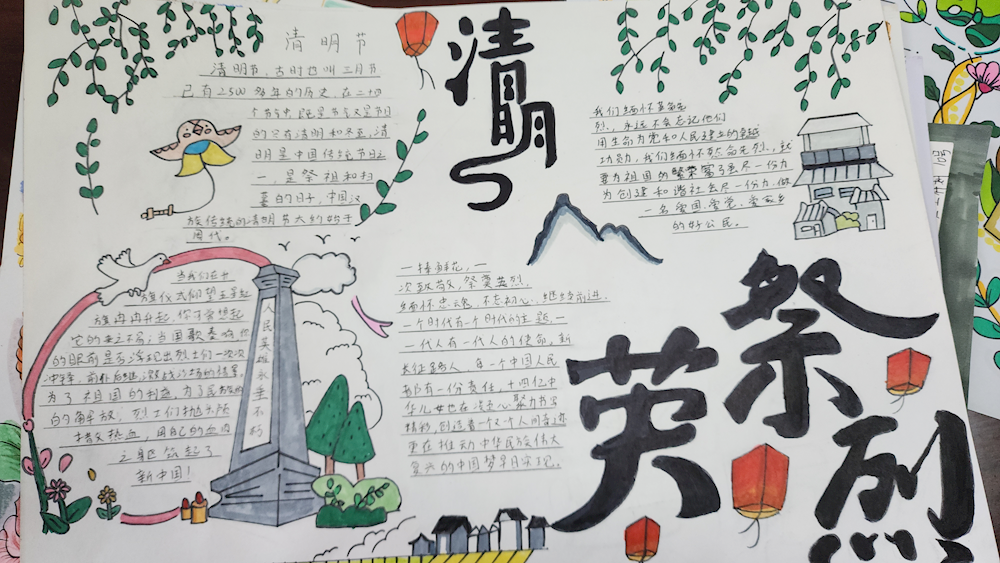 清明节
清明节，古时也叫三月节
已有2500多年的历史，在二十四
个节气中，既是节气又是节日
的只有清明和冬至，清
明是中国传统节日之
一，是祭祖和扫
墓的日子，中国汉
族传统的清明节大约始于
周代。
清明
我们缅怀革命先
烈，永远不会忘记他们
用生命为党和人民建立的卓越
功勋，我们缅怀革命先烈，就
要为祖国的繁荣富强尽一份力
为创建和谐社会尽一份力，做
一名爱国、爱党、爱家乡
的好公民。
当我们在升
旗仪式仰望五星红
旗冉冉升起，你可曾想起
它的来之不易；当国歌奏响，你
的眼前是否浮现出烈士们一次次
冲锋，前仆后继，激战沙场的情景。
为了祖国的利益，为了民族的
的解放，烈士们抛头颅
洒热血，用自己的血肉
之躯筑起了
新中国！
人民英雄永垂不朽
一捧鲜花，一
次致敬，祭奠英烈，
缅怀忠魂，不忘初心，继续前进。
一个时代有一个时代的主题，一
一代人有一代人的使命，新
长征路人，每一个中国人民
都有一份责任，十四亿中
华儿女也在凝心聚力书写
精彩，创造着一个又个人间奇迹
更在推动中华民族伟大
复兴的中国梦早日实现。
祭
英烈